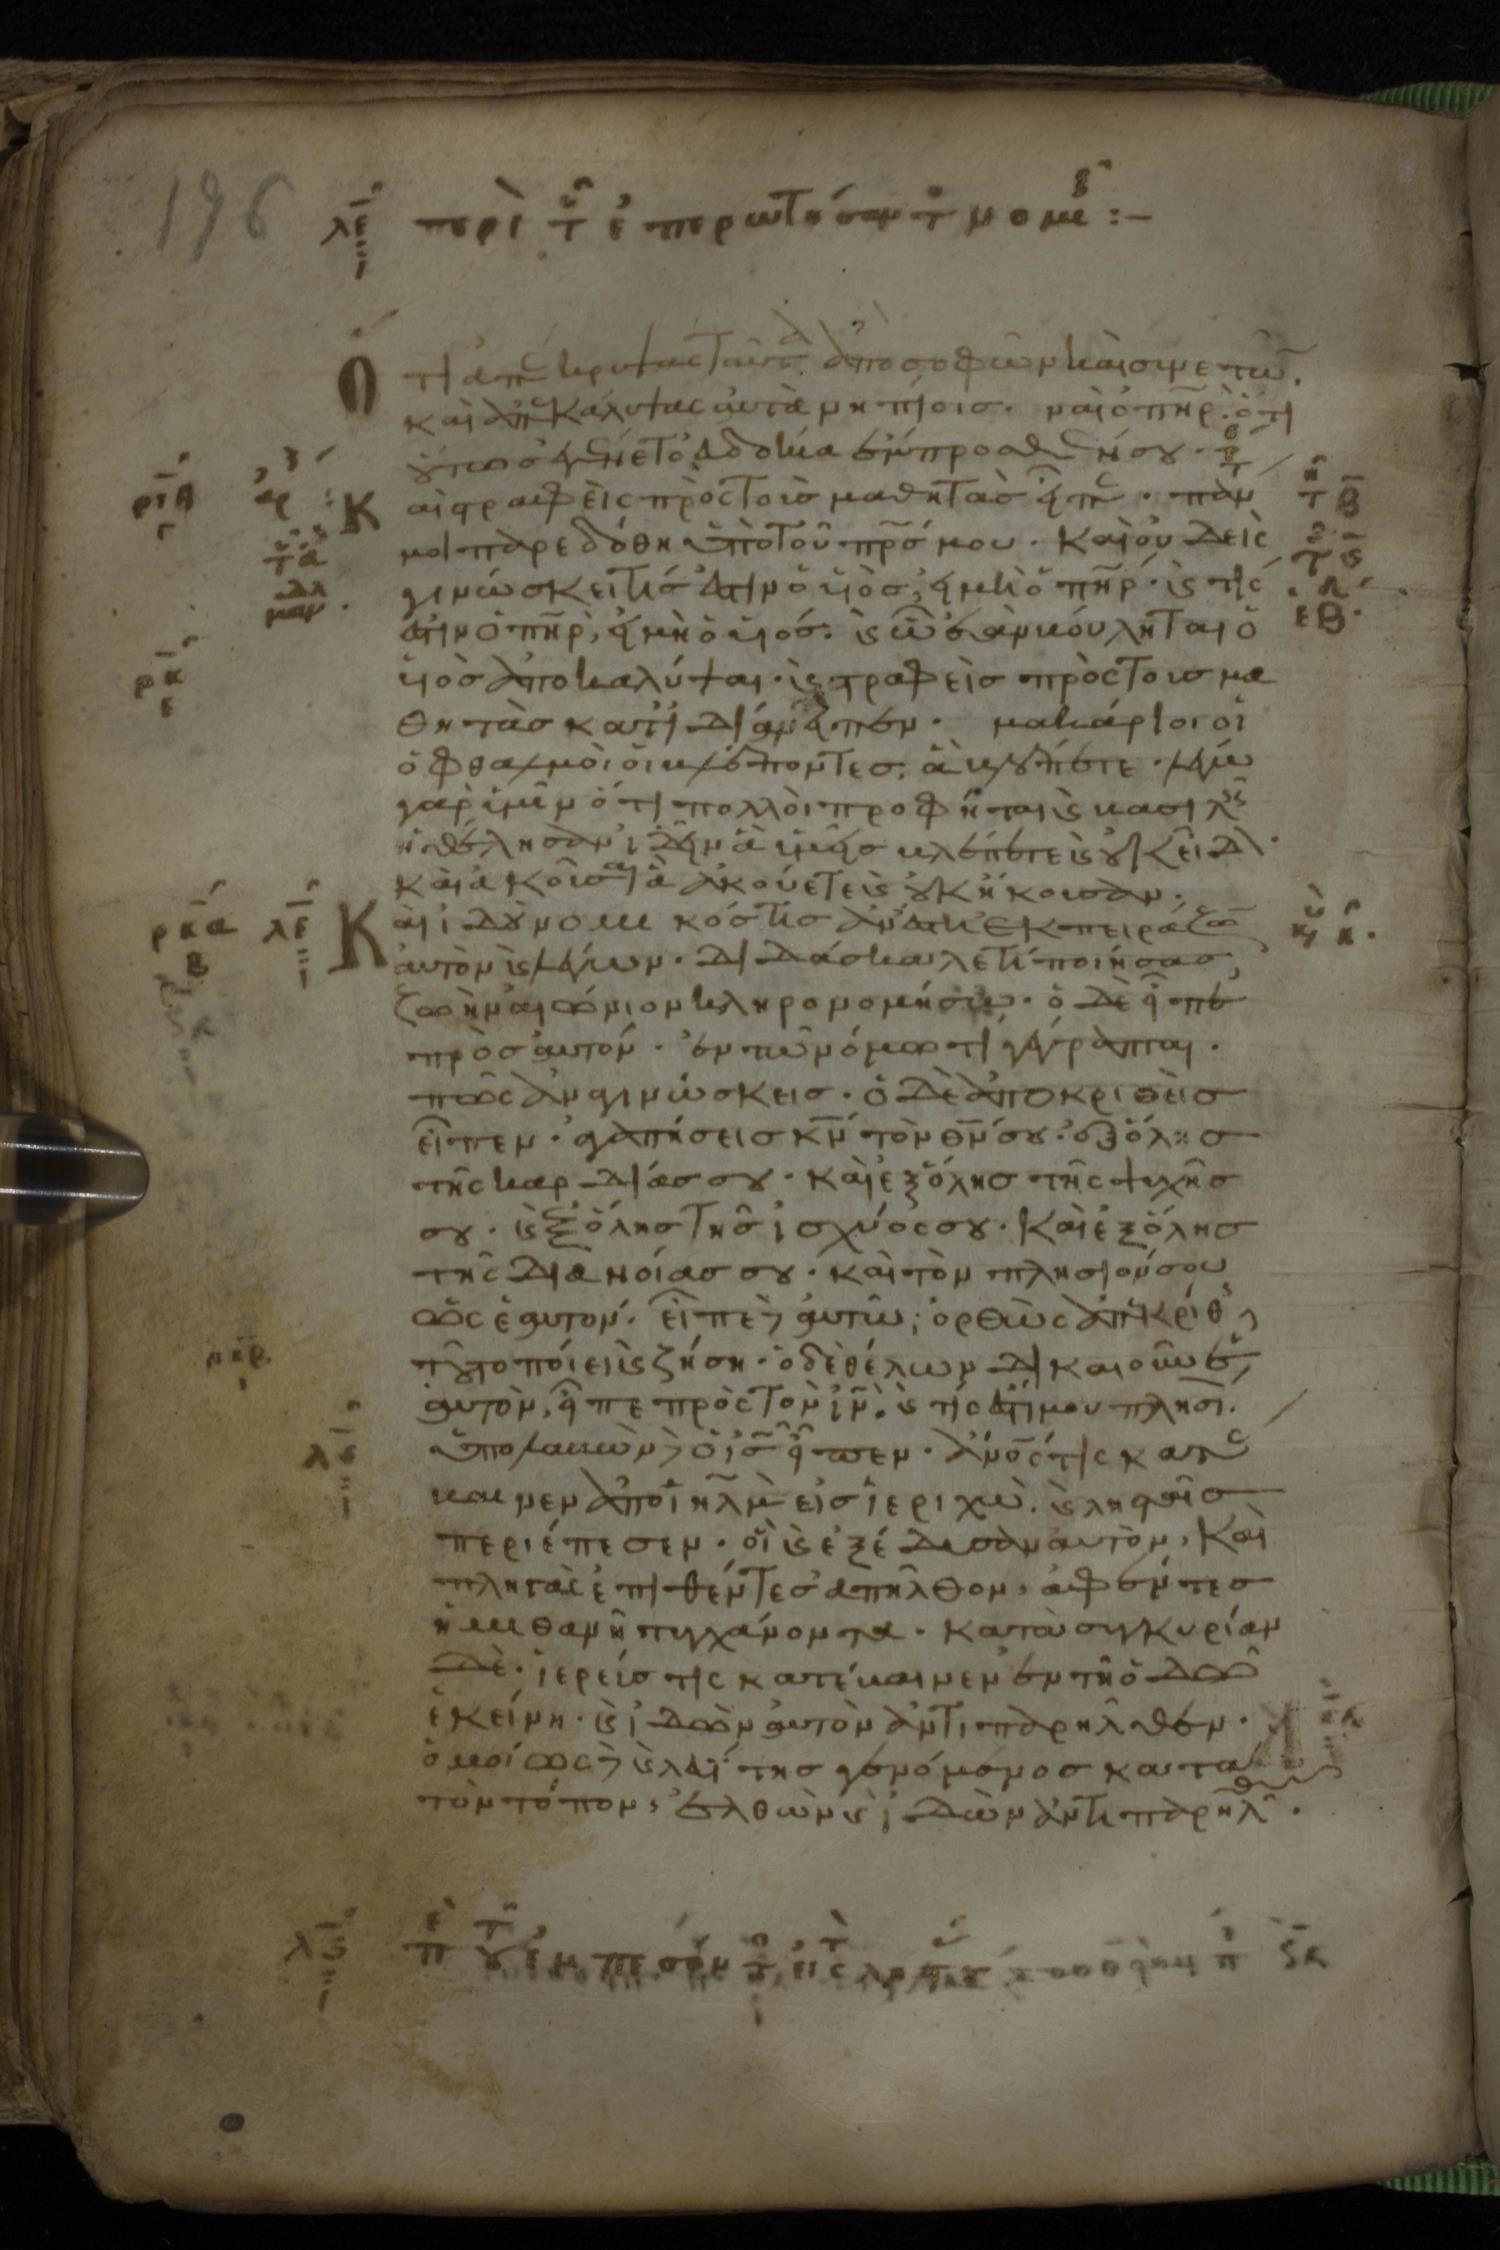 196
λε περὶ τοῦ ἐπερωτήσαντος νομικοῦ :-
Ὅτι ἀπέκρυψας ταῦτα ἀπὸ σοφῶν καὶ συνετῶν.
καὶ ἀπεκάλυψας αὐτὰ νηπίοις. ναὶ ὁ πηρ. ὅτι
οὕτως ἐγένετο εὐδοκία ἔμπροσθέν σου.
Καὶ στραφεὶς πρὸς τοὺς μαθητὰς εἶπε. πάντα
μοι παρεδόθη ὑπὸ τοῦ πρσ μου. καὶ οὐδεὶς
γινώσκει τίς ἐστιν ὁ υἱὸς, εἰ μὴ ὁ πηρ. καὶ τίς
ἐστιν ὁ πηρ, εἰ μὴ ὁ υἱός. καὶ ᾧ ἐὰν βούληται ὁ
υἱὸς ἀποκαλύψαι. καὶ στραφεὶς πρὸς τοὺς μα
θητὰς κατ' ἰδίαν εἶπεν. μακάριοι οἱ
ὀφθαλμοὶ οἱ βλέποντες, ἃ βλέπετε. λέγω
γὰρ ὑμῖν ὅτι πολλοὶ προφῆται καὶ βασιλεῖς
ἠθέλησαν ἰδεῖν ἃ ὑμεῖς βλέπετε καὶ οὐκ εἶδον.
καὶ ἀκοῦσαι ἃ ἀκούετε καὶ οὐκ ἤκουσαν.
ρκα λε Καὶ ἰδοὺ νομικός τις ἀνέστη ἐκπειράζων
αὐτὸν καὶ λέγων. διδάσκαλε τί ποιήσας,
ζωὴν αἰώνιον κληρονομήσω. ὁ δὲ εἶπε
πρὸς αὐτόν. ἐν τῷ νόμῳ τί γέγραπται.
πῶς ἀναγινώσκεις. ὁ δὲ ἀποκριθεὶς
εἶπεν. ἀγαπήσεις κν τὸν θν σου. ἐξ ὅλης
τῆς καρδίας σου. καὶ ἐξ ὅλης τῆς ψυχῆς
σου. καὶ ἐξ ὅλης τῆς ἰσχύος σου. καὶ ἐξ ὅλης
τῆς διανοίας σου. καὶ τὸν πλησίον σου
ὡς ἑαυτόν. εἶπε δὲ αὐτῷ, ὀρθῶς ἀπεκρίθης,
τοῦτο ποίει καὶ ζήσῃ. ὁ δὲ θέλων δικαιοῦν ἑ
αυτὸν, εἶπε πρὸς τὸν ιν. καὶ τίς ἐστί μου πλησίον.
ὑπολαβὼν δὲ ὁ ισ εἶπεν. ἄνος τις κατέ
βαινεν ἀπὸ ιηλμ εἰς ἱεριχὼ. καὶ λησταῖς
περιέπεσεν. οἳ καὶ ἐξέδυσαν αὐτὸν, καὶ
πληγὰς ἐπιθέντες ἀπῆλθον, ἀφέντες
ἡμιθανῆ τυγχάνοντα. κατὰ συγκυρίαν
δὲ. ἱερεύς τις κατέβαινεν ἐν τῇ ὁδῷ
ἐκείνῃ. καὶ ἰδὼν αὐτὸν ἀντιπαρῆλθεν.
ὁμοίως δὲ καὶ λευΐτης γενόμενος κατὰ
τὸν τόπον, ἐλθὼν καὶ ἰδὼν ἀντιπαρῆλθεν.
λς περὶ τοῦ ἐμπεσόντος εἰς